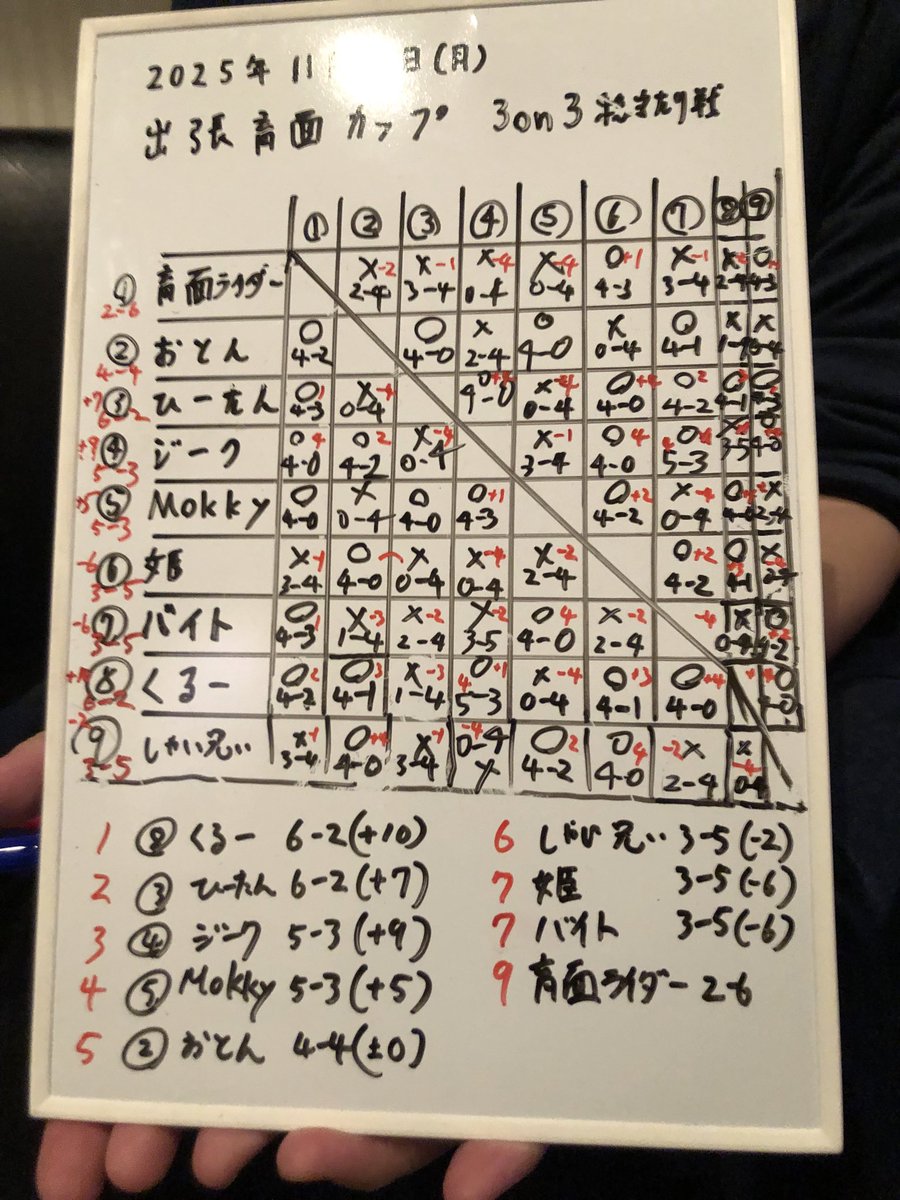 2025年 11 日(月)
出張 育面カップ 3on3 総当り戦
① ② ③ ④ ⑤ ⑥ ⑦ ⑧ ⑨
① 2-6 育面ライダー ×-2 2-4 ×-1 3-4 ×-4 0-4 ×-4 0-4 ○+1 4-3 ×-1 3-4 × 2-4 ○ 4-3
② 4-4 おとん ○ 4-2 ○ 4-0 × 2-4 ○ 4-0 × 0-4 ○ 4-1 × 1-4 × 0-4
+7 ③ 6-2 ひーたん ○1 4-3 × 0-4 ○ 4-0 ×-4 0-4 ○+4 4-0 ○2 4-2 ○ 4-1 ○ 4-3
+9 ④ 5-3 ジーク ○4 4-0 ○2 4-2 ×-4 0-4 ×-1 3-4 ○4 4-0 ○ 5-3 × 3-5 ○ 4-0
+5 ⑤ 5-3 Mokky ○ 4-0 × 0-4 ○ 4-0 ○+1 4-3 ○+2 4-2 ×-4 0-4 ○ 4-0 × 2-4
-6 ⑥ 3-5 姫 ×-1 3-4 ○ 4-0 × 0-4 ×-4 0-4 ×-2 2-4 ○+2 4-2 ○ 4-1 ×
-6 ⑦ 3-5 バイト ○1 4-3 ×-3 1-4 ×-2 2-4 ×-2 3-5 ○4 4-0 ×-2 2-4 -4 × 0-4 ○ 4-2
+10 ⑧ 6-2 くるー ○2 4-2 ○3 4-1 ×-3 1-4 ○+1 5-3 ×-4 0-4 ○+3 4-1 ○+4 4-0 ○ 4-0
-2 ⑨ 3-5 しゃい兄い ×-1 3-4 ○+4 4-0 ×-1 3-4 -4 0-4 × ○2 4-2 ○4 4-0 -2 × 2-4 × -4 0-4
1 ⑧ くるー 6-2(+10)
2 ③ ひーたん 6-2(+7)
3 ④ ジーク 5-3(+9)
4 ⑤ Mokky 5-3(+5)
5 ② おとん 4-4(±0)
6 しゃい兄い 3-5(-2)
7 姫 3-5(-6)
7 バイト 3-5(-6)
9 育面ライダー 2-6